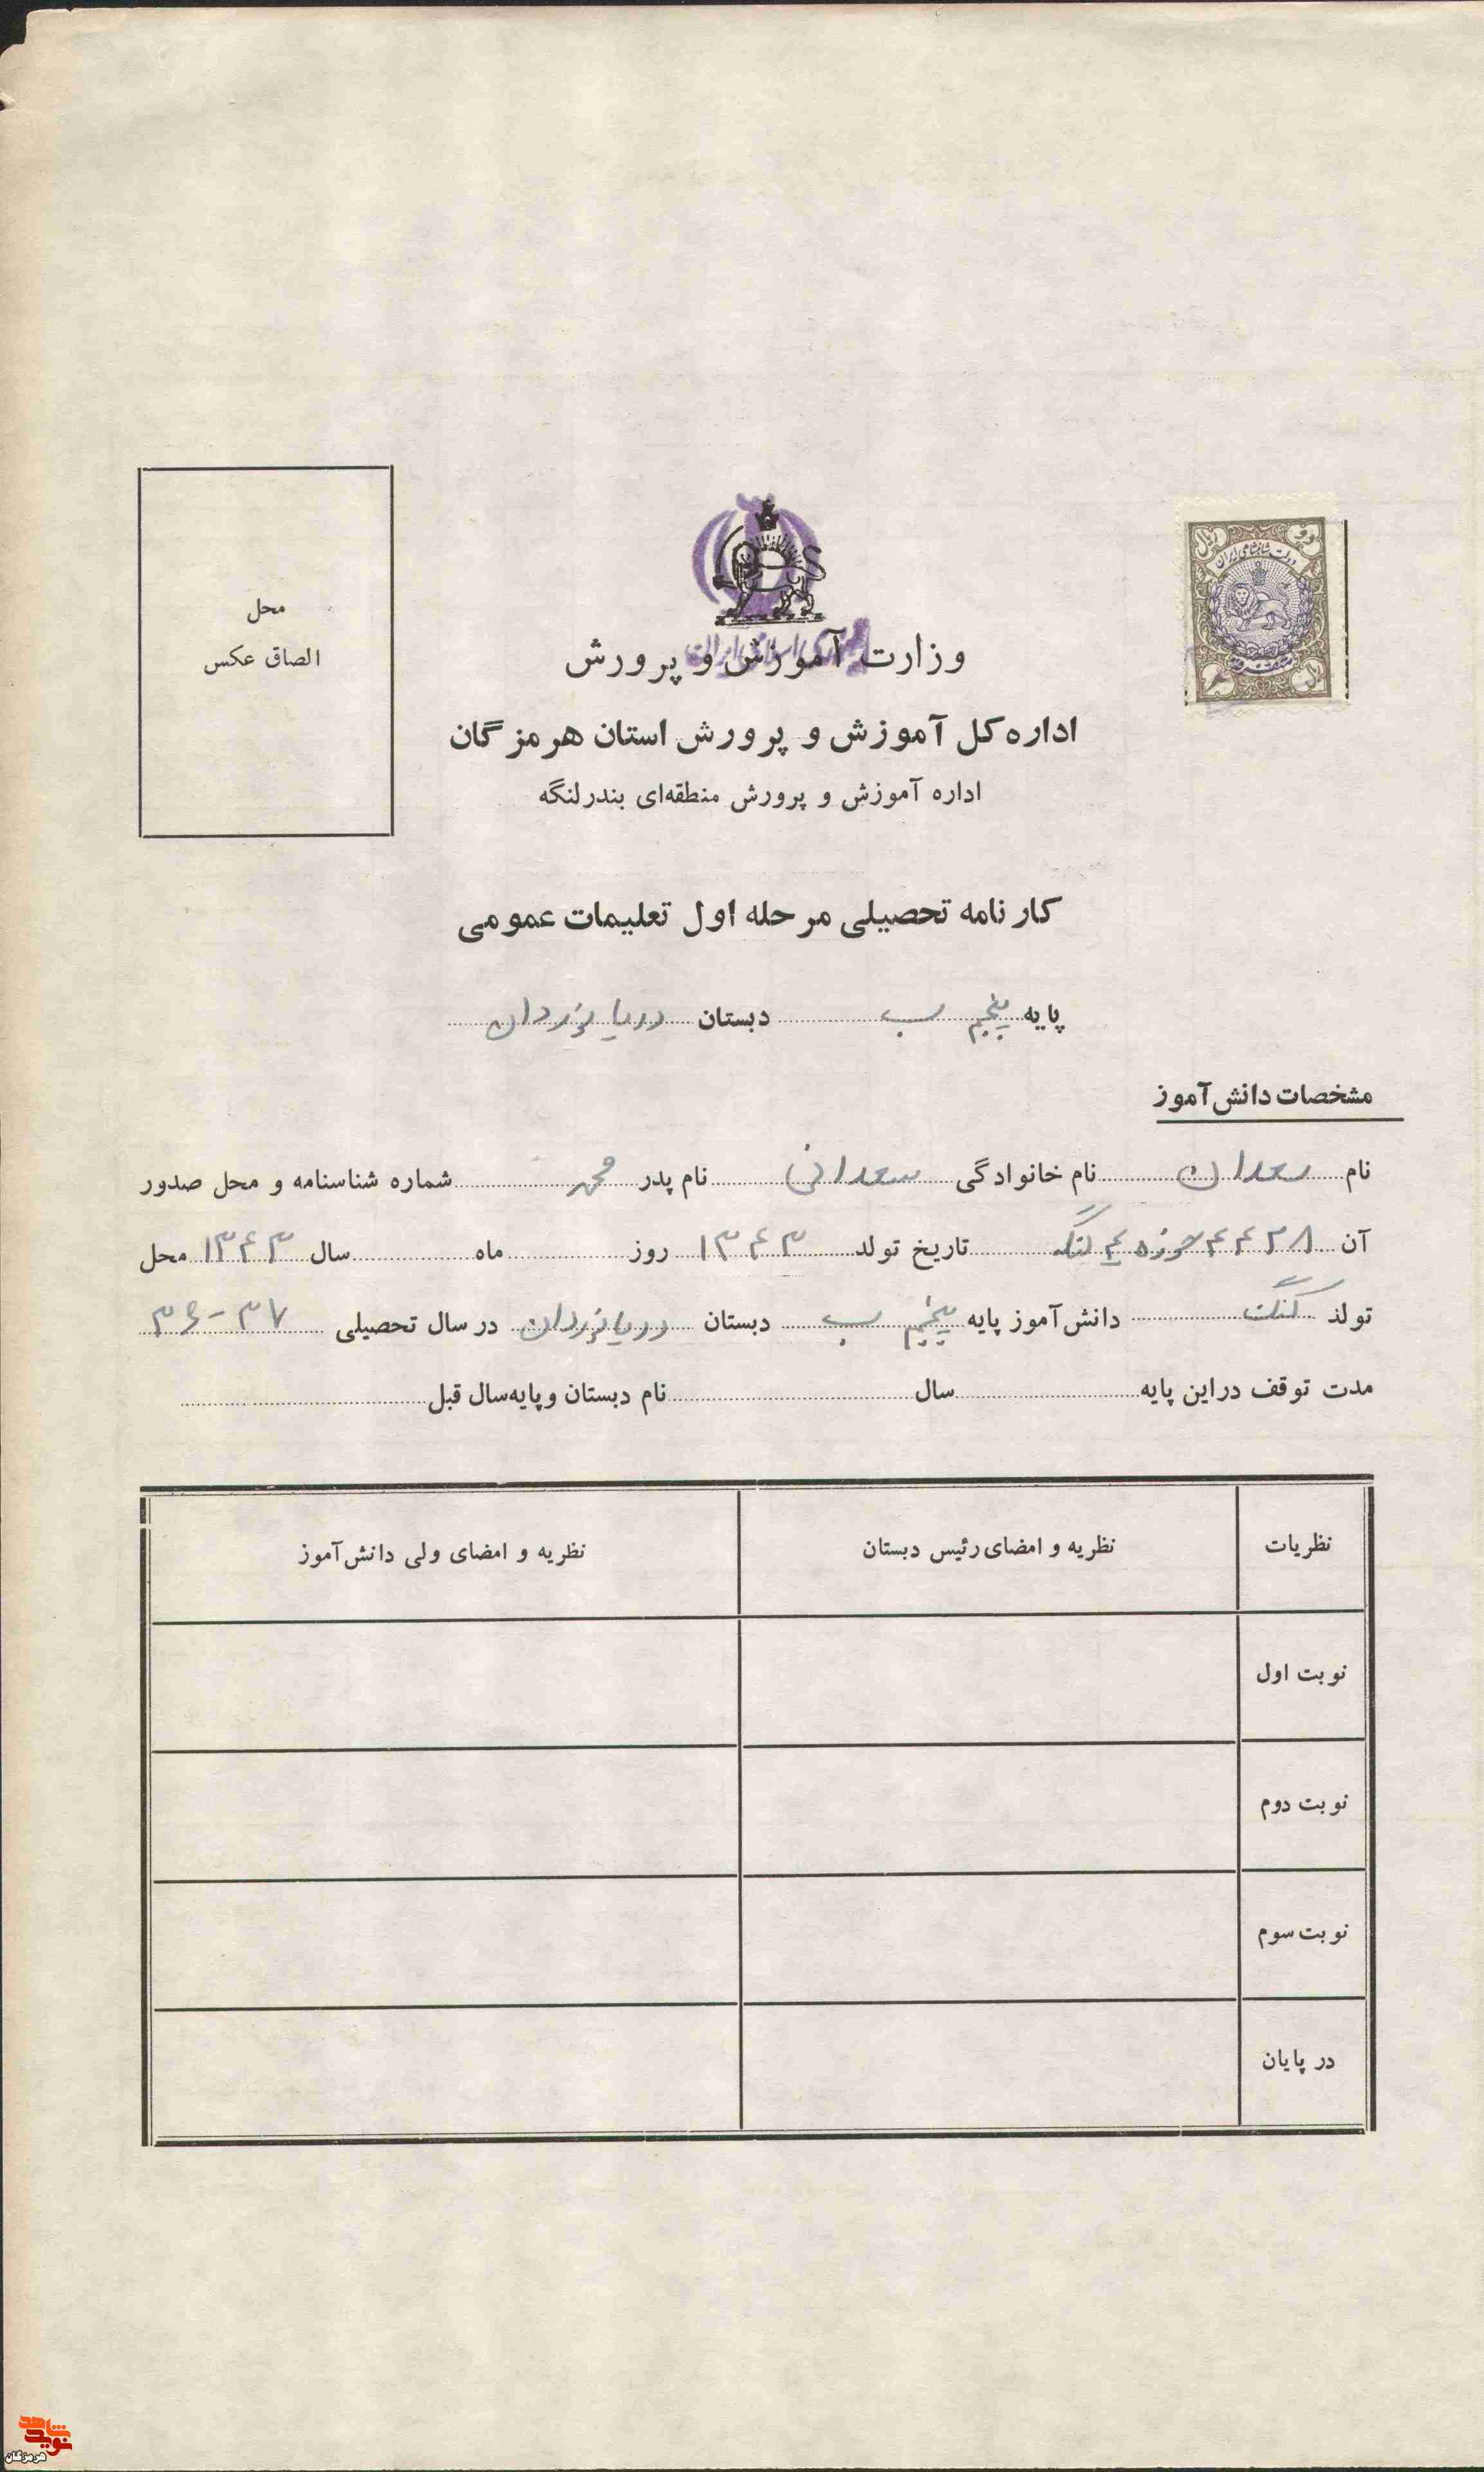 دو ریال
دولت شاهنشاهی ایران
محل
الصاق عکس
وزارت آموزش و پرورش
اداره کل آموزش و پرورش استان هرمزگان
اداره آموزش و پرورش منطقه‌ای بندرلنگه
کارنامه تحصیلی مرحله اول تعلیمات عمومی
پایه پنجم ب دبستان دریانوردان
مشخصات دانش‌آموز
نام سعدان نام خانوادگی سعدانی نام پدر محمد شماره شناسنامه و محل صدور
آن ۴۴۳۸ حوزه ۴ لنگه تاریخ تولد ۱۳۴۳ روز ماه سال ۱۳۴۳ محل
تولد گنگ دانش‌آموز پایه پنجم ب دبستان دریانوردان در سال تحصیلی ۳۷-۳۶
مدت توقف در این پایه سال نام دبستان و پایه سال قبل
نظریات نظریه و امضای رئیس دبستان نظریه و امضای ولی دانش‌آموز
نوبت اول
نوبت دوم
نوبت سوم
در پایان
نوید شاهد
هرمزگان